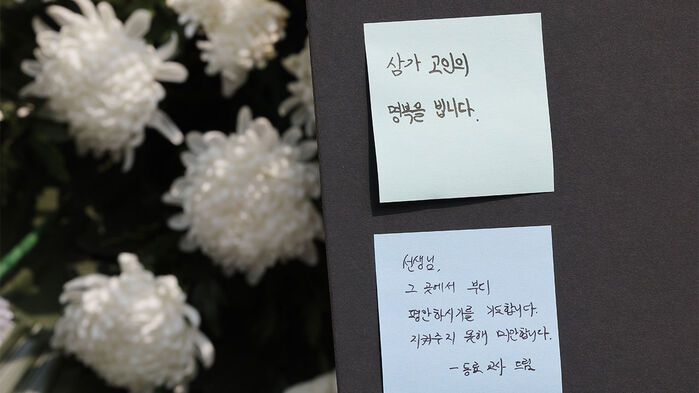 삼가 고인의
명복을 빕니다.
선생님,
그 곳에서 부디
평안하시기를 기도합니다.
지켜주지 못해 미안합니다.
- 동료 교사 드림